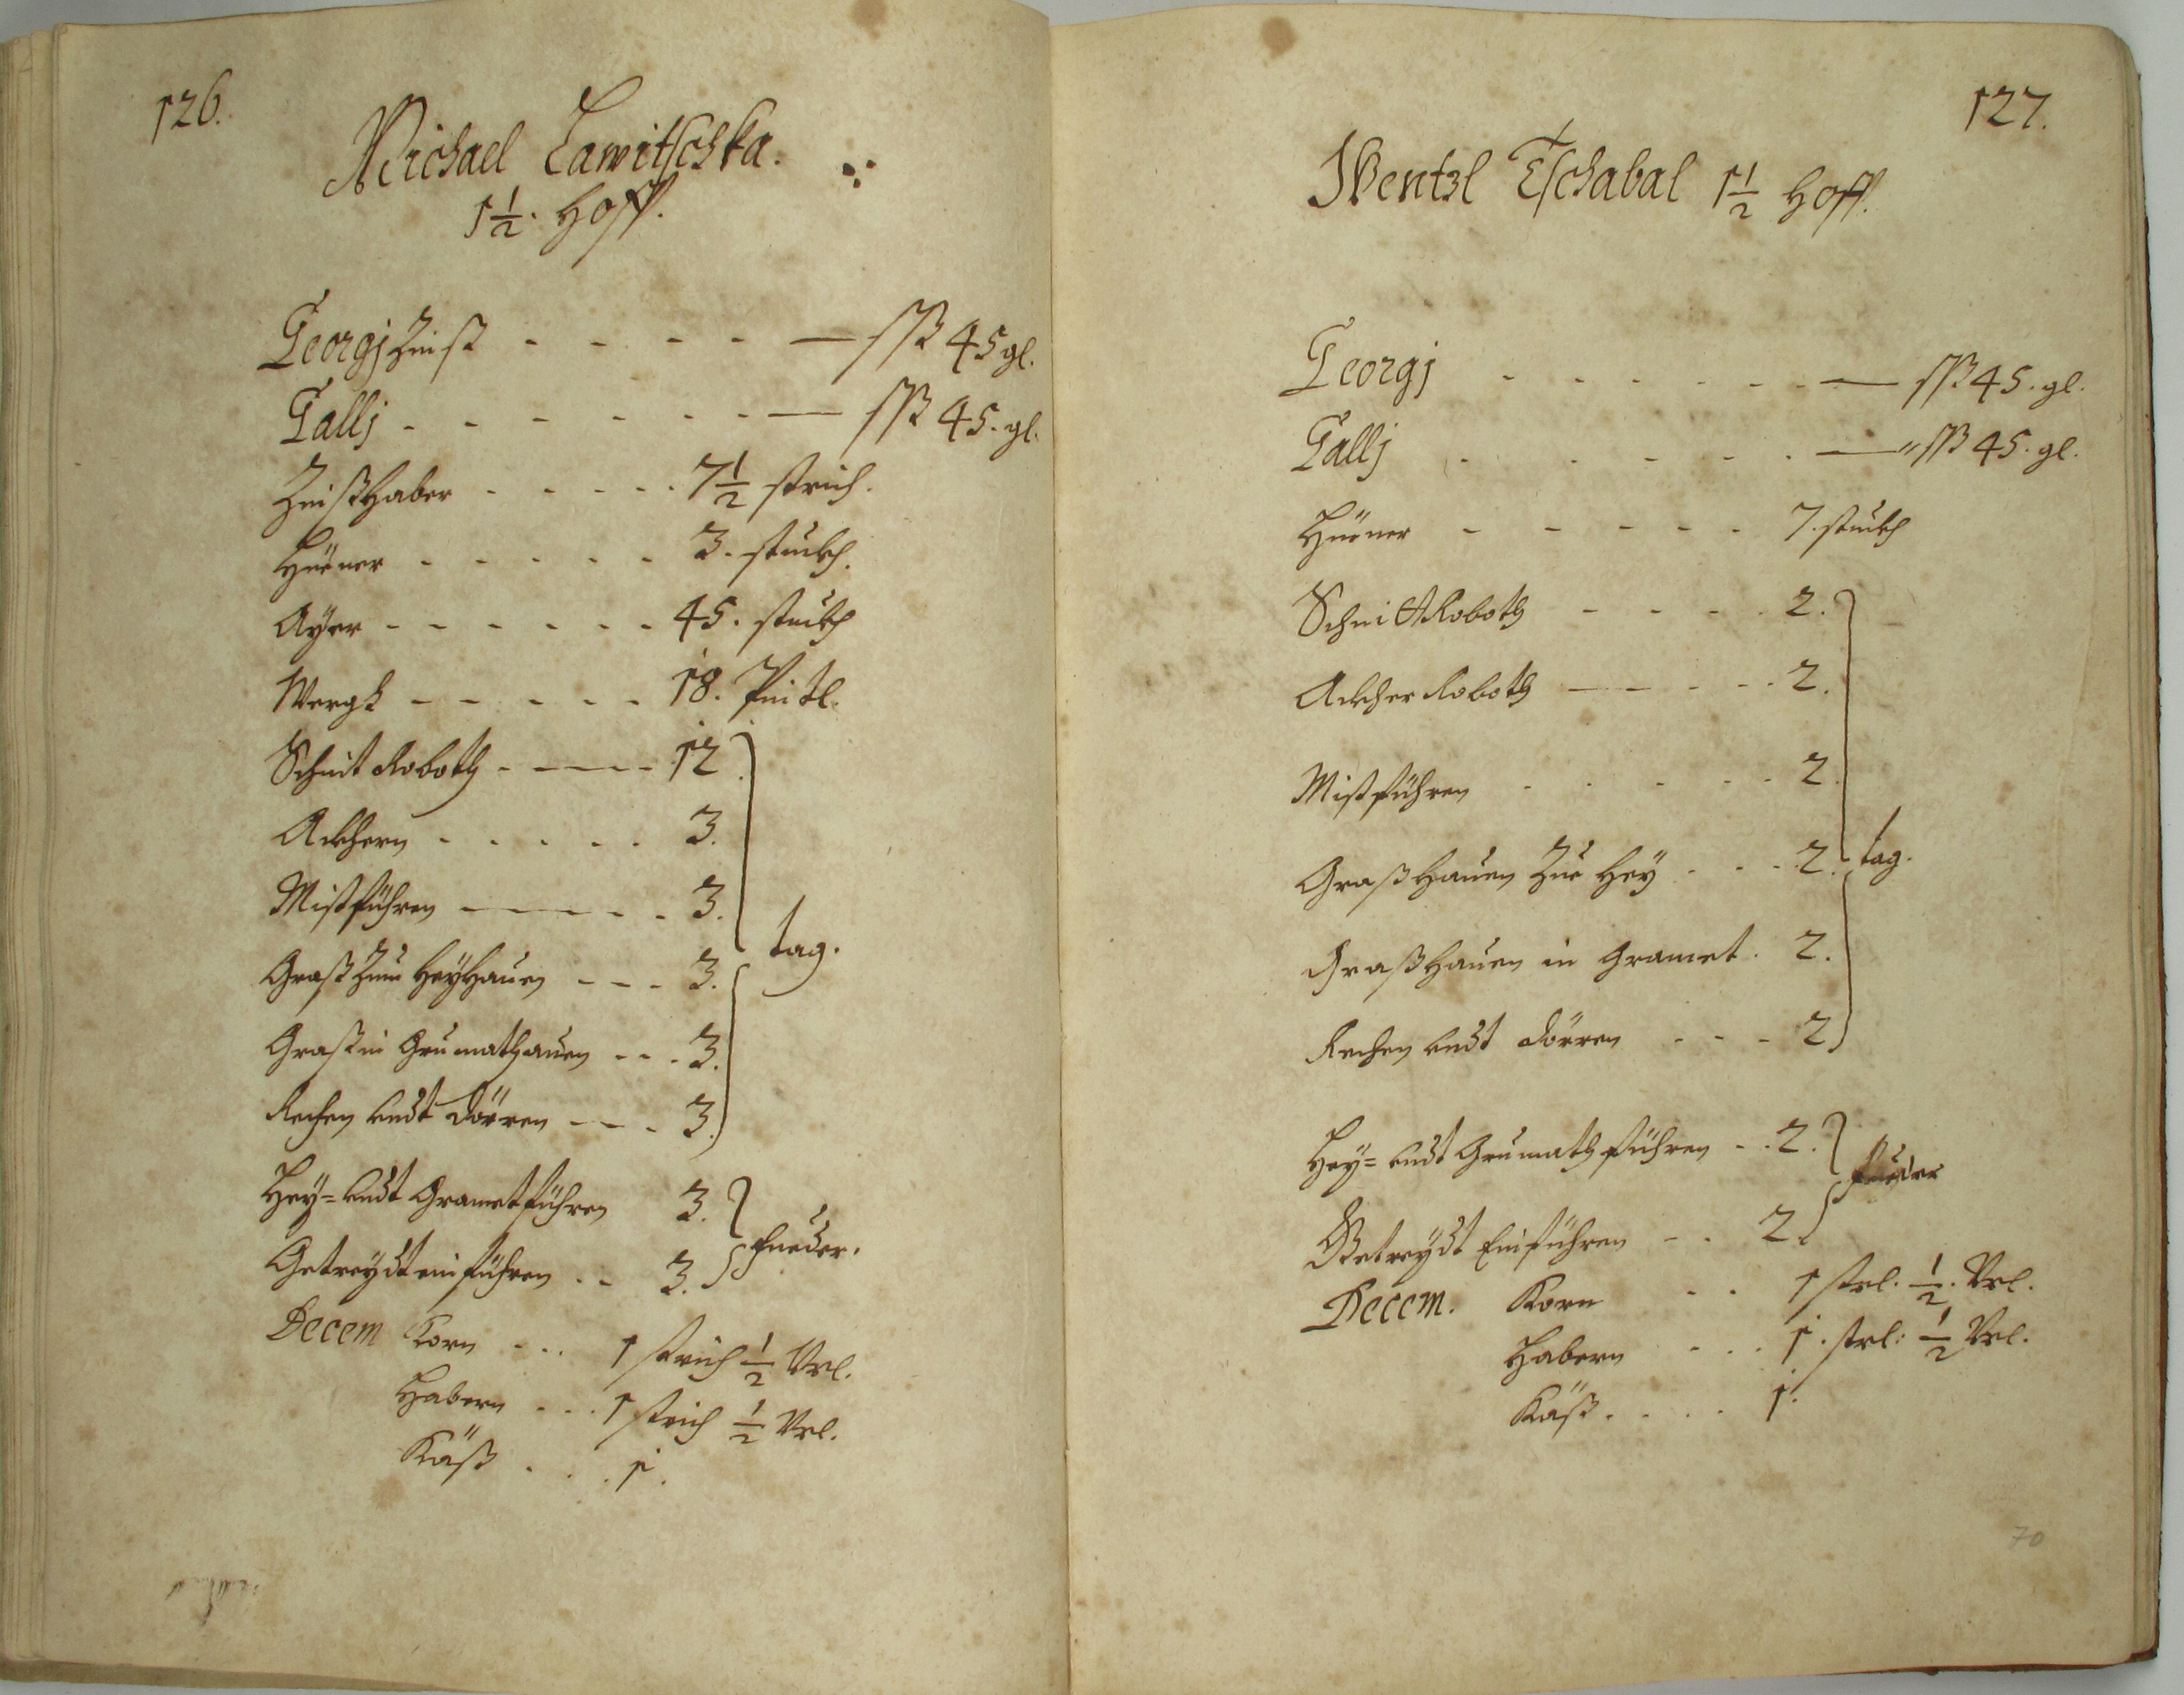 126.
Michael Lawitschka.
1 1/2. Hoff.
Georgj Zinß - - - - — ßß 45 gl.
Gallj - - - - - - — ßß 45. gl.
Zinßhaber - - - - - 7 1/2 strich.
Hüener - - - - - 3. stuckh.
Ayer - - - - - - 45. stuckh
Wergk - - - - - 18.
Schnit Roboth - - - - 12.
Ackhern - - - - - 3.
Mistführen - - - - 3.
tag.
Graß Zum Heyhauen - - - 3.
Graß in Grumathauen - - - 3.
Rechen undt dörren - - - 3.
Hey= undt Grametführen 3.
fueder.
Getreydt einführen - - 3.
Decem Korn - - - 1 strich 1/2 Vrl.
Habern - - - 1 strich 1/2 Vrl.
Käß . . . 1.
127.
Wentzl Tschabal 1 1/2 Hoff.
Georgj - - - - - - — ßß 45. gl.
Gallj - - - - - — ßß 45. gl.
Hüener - - - - - - 7. stuckh
Schnitt Roboth - - - - 2.
Ackher Roboth - - - - 2.
Mistführen - - - - - 2.
Graßhauen Zue Hey - - - 2. tag.
Graßhauen in Gramet . 2.
Rechen undt dörren - - - 2
Hey= undt Grumath führen - - 2.
fueder
Getreydt Einführen - - 2.
Decem. Korn - - 1 strl. 1/2. Vrl.
Habern - - - 1. strl: 1/2 Vrl.
Käß . . . . 1.
70